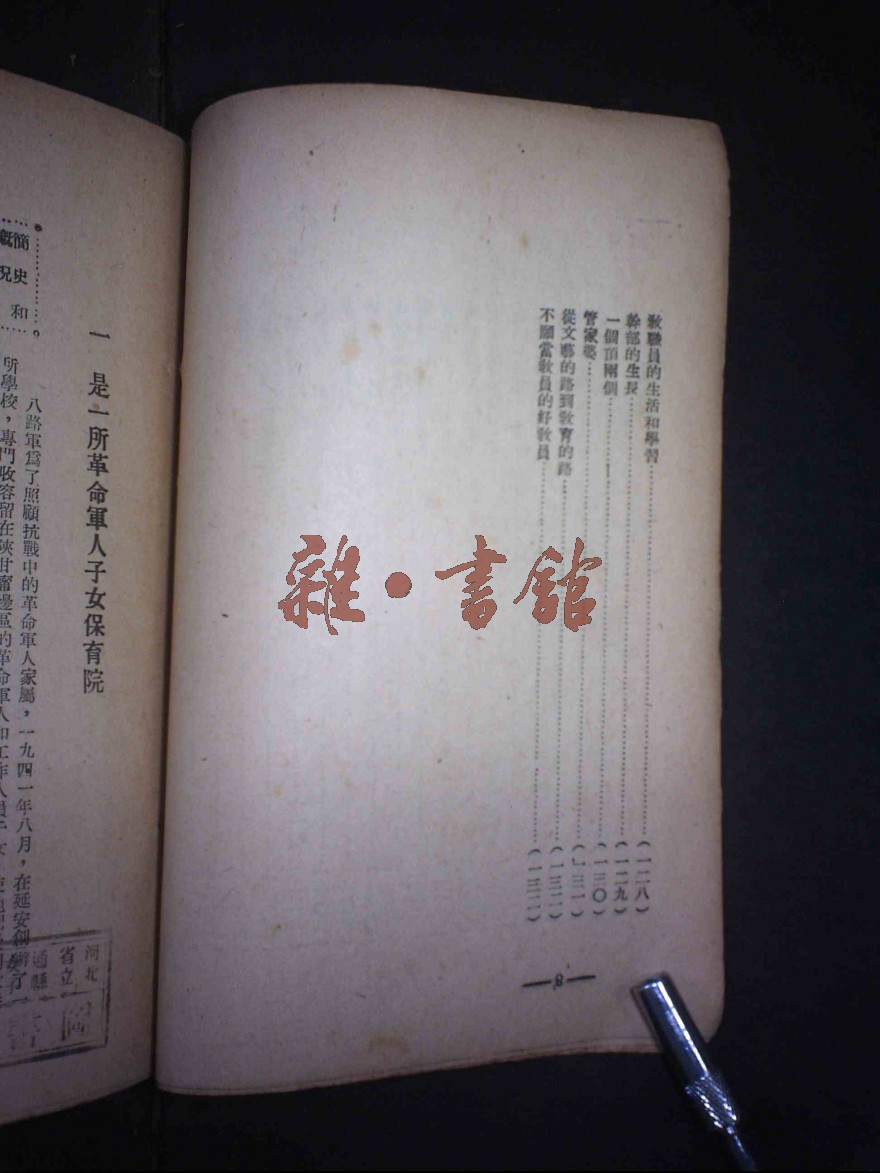 教職員的生活和學習……(一二八)
幹部的生長……(一二九)
一個頂兩個……(一三〇)
管家婆……(一三一)
從文藝的路到教育的路……(一三二)
不願當教員的好教員……(一三二)
—8—
雜·書館
簡史和
概況
一 是一所革命軍人子女保育院
八路軍爲了照顧抗戰中的革命軍人家屬,一九四一年八月,在延安創辦了一
所學校,專門收容留在陝甘寧邊區的革命軍人和工作人員子女
河北
省立
通縣